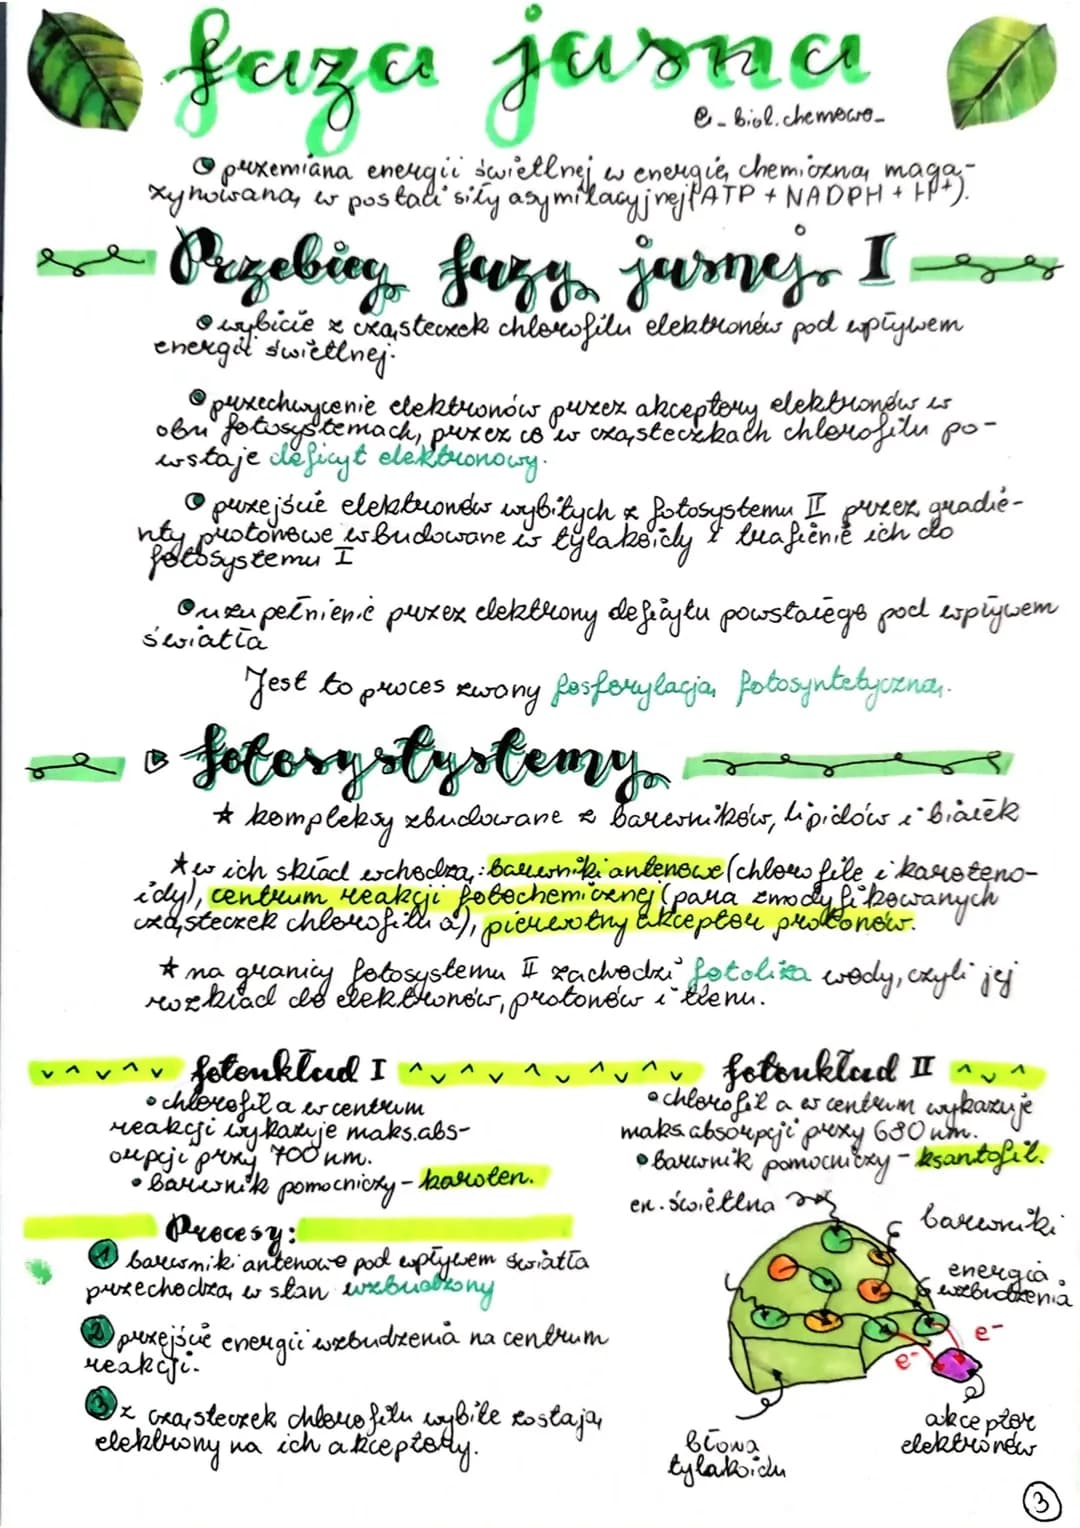 faza jasna
@_biol.chemowo_
przemiana energii świetlnej w energię chemiczną maga-
zynowaną w postaci siły asymilacyjnej (ATP + NADPH + H+).
Przebieg fazy jasnej I
wybicie z cząsteczek chlorofilu elektronów pod wpływem
energii świetlnej.
przechwycenie elektronów przez akceptory elektronów w
obu fotosystemach, przez co w cząsteczkach chlorofilu po-
wstaje deficyt elektronowy.
przejście elektronów wybitych z fotosystemu II przez gradie-
nty protonowe wbudowane w tylakoidy i trafienie ich do
fotosystemu I
uzupełnienie przez elektrony deficytu powstałego pod wpływem
światła
Jest to proces zwany fosforylacją fotosyntetyczną.
fotosystystemy
★ kompleksy zbudowane z barwników, lipidów i białek
★ w ich skład wchodzą: barwniki antenowe (chlorofile i karoteno-
idy), centrum reakcji fotochemicznej (para zmodyfikowanych
cząsteczek chlorofilu a), pierwotny akceptor protonów.
★ na granicy fotosystemu II zachodzi fotoliza wody, czyli jej
rozkład do elektronów, protonów i tlenu.
fotoukład I
• chlorofil a w centrum
reakcji wykazuje maks. abs-
orpcji przy 700 nm.
• barwnik pomocniczy - karoten.
fotoukład II
• chlorofil a w centrum wykazuje
maks. absorpcji przy 680 nm.
• barwnik pomocniczy - ksantofil.
Procesy:
1 barwniki antenowe pod wpływem światła
przechodzą w stan wzbudzony
2 przejście energii wzbudzenia na centrum
reakcji.
3 z cząsteczek chlorofilu wybite zostają
elektrony na ich akceptory.
en. świetlna
barwniki
energia
wzbudzenia
e-
e-
akceptor
elektronów
błona
tylakoidu
3